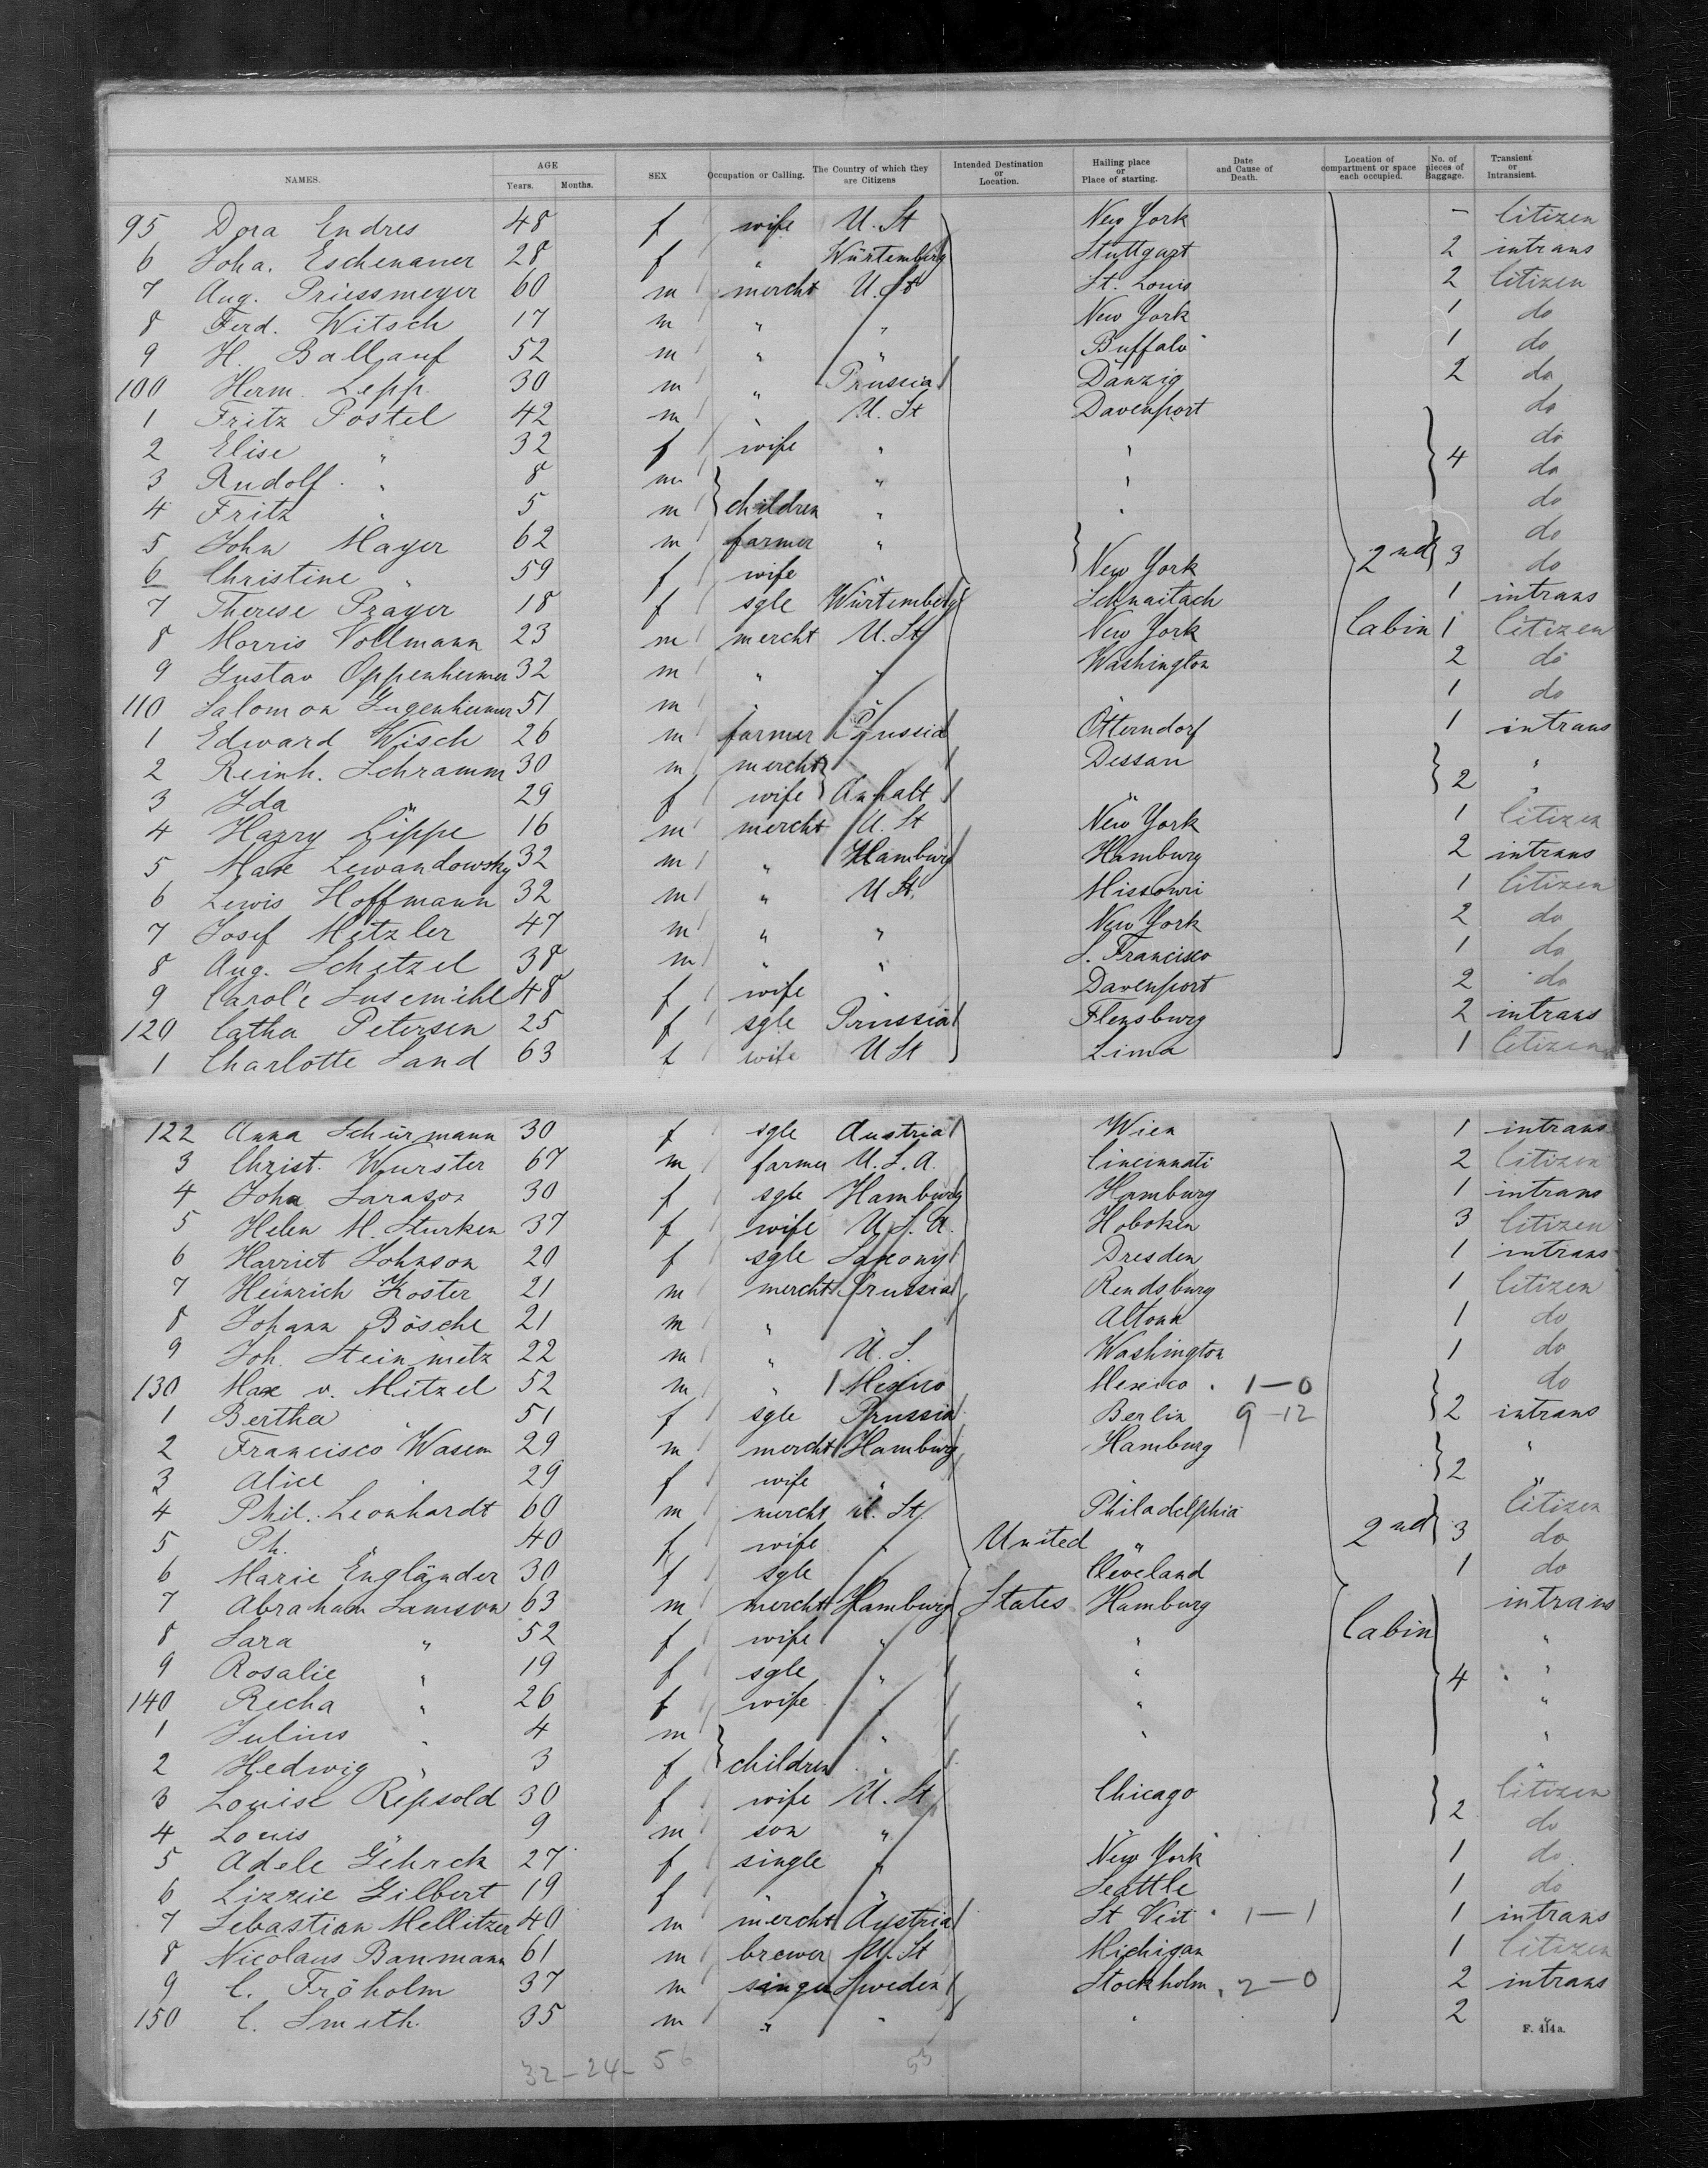 NAMES. AGE Years. Months. SEX Occupation or Calling. The Country of which they are Citizens Intended Destination or Location. Hailing place or Place of starting. Date and Cause of Death. Location of compartment or space each occupied. No. of pieces of Baggage. Transient or Intransient.
95 Dora Endres 48 f wife U. St New York - Citizen
6 Joha. Eschenauer 28 f " Würtemberg Stuttgart 2 intrans
7 Aug. Priessmeyer 60 m mercht U. St St. Louis 2 Citizen
8 Ferd. Witsch 17 m " " New York 1 do
9 H. Ballauf 52 m " " Buffalo 1 do
100 Herm. Lepp. 30 m " Prussia Danzig 2 do
1 Fritz Postel 42 m " U. St Davenport do
2 Elise " 32 f wife " " do
3 Rudolf " 8 m " " 4 do
4 Fritz " 5 m children " " do
5 John Mayer 62 m farmer " do
6 Christine " 59 f wife New York 2nd 3 do
7 Therese Prager 18 f sgle Würtemberg Schnaitach 1 intrans
8 Morris Vollmann 23 m mercht U. St New York Cabin 1 Citizen
9 Gustav Oppenheimer 32 m " " Washington 2 do
110 Salomon Gugenheimer 51 m " " " 1 do
1 Edward Wisch 26 m farmer Prussia Otterndorf 1 intrans
2 Reinh. Schramm 30 m mercht Dessau "
3 Ida " 29 f wife Anhalt " 2 "
4 Harry Lippe 16 m mercht U. St New York 1 Citizen
5 Max Lewandowsky 32 m " Hamburg Hamburg 2 intrans
6 Lewis Hoffmann 32 m " U St. Missouri 1 Citizen
7 Josef Metzler 47 m " " New York 2 do
8 Aug. Schetzel 38 m " " S. Francisco 1 do
9 Carol'e Susemihl 48 f wife " Davenport 2 do
120 Catha Petersen 25 f sgle Prussia Flensburg 2 intrans
1 Charlotte Sand 63 f wife U St Lima 1 Citizen
122 Anna Schürmann 30 f sgle Austria Wien 1 intrans
3 Christ. Wurster 67 m farmer U. S. A. Cincinnati 2 Citizen
4 Joha Sarason 30 f sgle Hamburg Hamburg 1 intrans
5 Helen M. Sturken 37 f wife U. S. A. Hoboken 3 Citizen
6 Harriet Johnson 20 f sgle Saxony Dresden 1 intrans
7 Heinrich Koster 21 m mercht Prussia Rendsburg 1 Citizen
8 Johann Bösche 21 m " " Altona 1 do
9 Joh. Steinmetz 22 m " U. S. Washington 1 do
130 Max v. Mitzel 52 m " Mexico Mexico . 1-0 do
1 Bertha " 51 f sgle Prussia Berlin 9-12 2 intrans
2 Francisco Wasem 29 m mercht Hamburg Hamburg "
3 Alice " 29 f wife " 2 "
4 Phil. Leonhardt 60 m mercht U. St. Philadelphia Citizen
5 Ph. " 40 f wife " United " 2nd 3 do
6 Marie Engländer 30 f sgle Cleveland 1 do
7 Abraham Samson 63 m mercht Hamburg States Hamburg intrans
8 Sara " 52 f wife " " Cabin "
9 Rosalie " 19 f sgle " " 4 "
140 Recha " 26 f wife " " "
1 Julius " 4 m " " "
2 Hedwig " 3 f children "
3 Louise Repsold 30 f wife U. St Chicago Citizen
4 Louis " 9 m son " " 2 do
5 Adele Gehrck 27 f single " New York 1 do
6 Lizzie Gilbert 19 f " " Seattle 1 do
7 Sebastian Mellitzer 40 m mercht Austria St Veit . 1-1 1 intrans
8 Nicolaus Baumann 61 m brewer U. St Michigan 1 Citizen
9 C. Fröholm 37 m singer Sweden Stockholm . 2-0 2 intrans
150 C. Smith. 35 m " " " 2 "
F. 414a.
32-24- 56 53